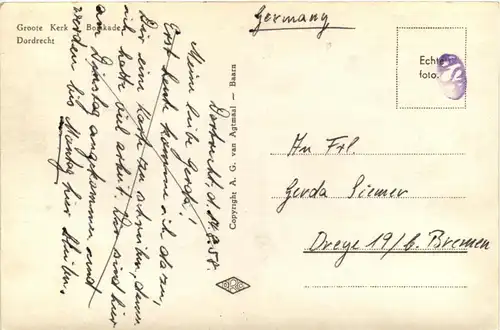 Groote Kerk - Bomkade
Dordrecht
Germany
Echte
foto.
An Frl.
Gerda Siemer
Dreye 19/b. Bremen
Copyright A. G. van Agtmaal — Baarn
Dordrecht, d.
Meine liebe Gerda!
Erst heute komme ich dazu,
Dir eine Karte zu schreiben, denn
ich hatte viel Arbeit. Wir sind hier
am Dienstag angekommen und
werden bis Montag hier bleiben.